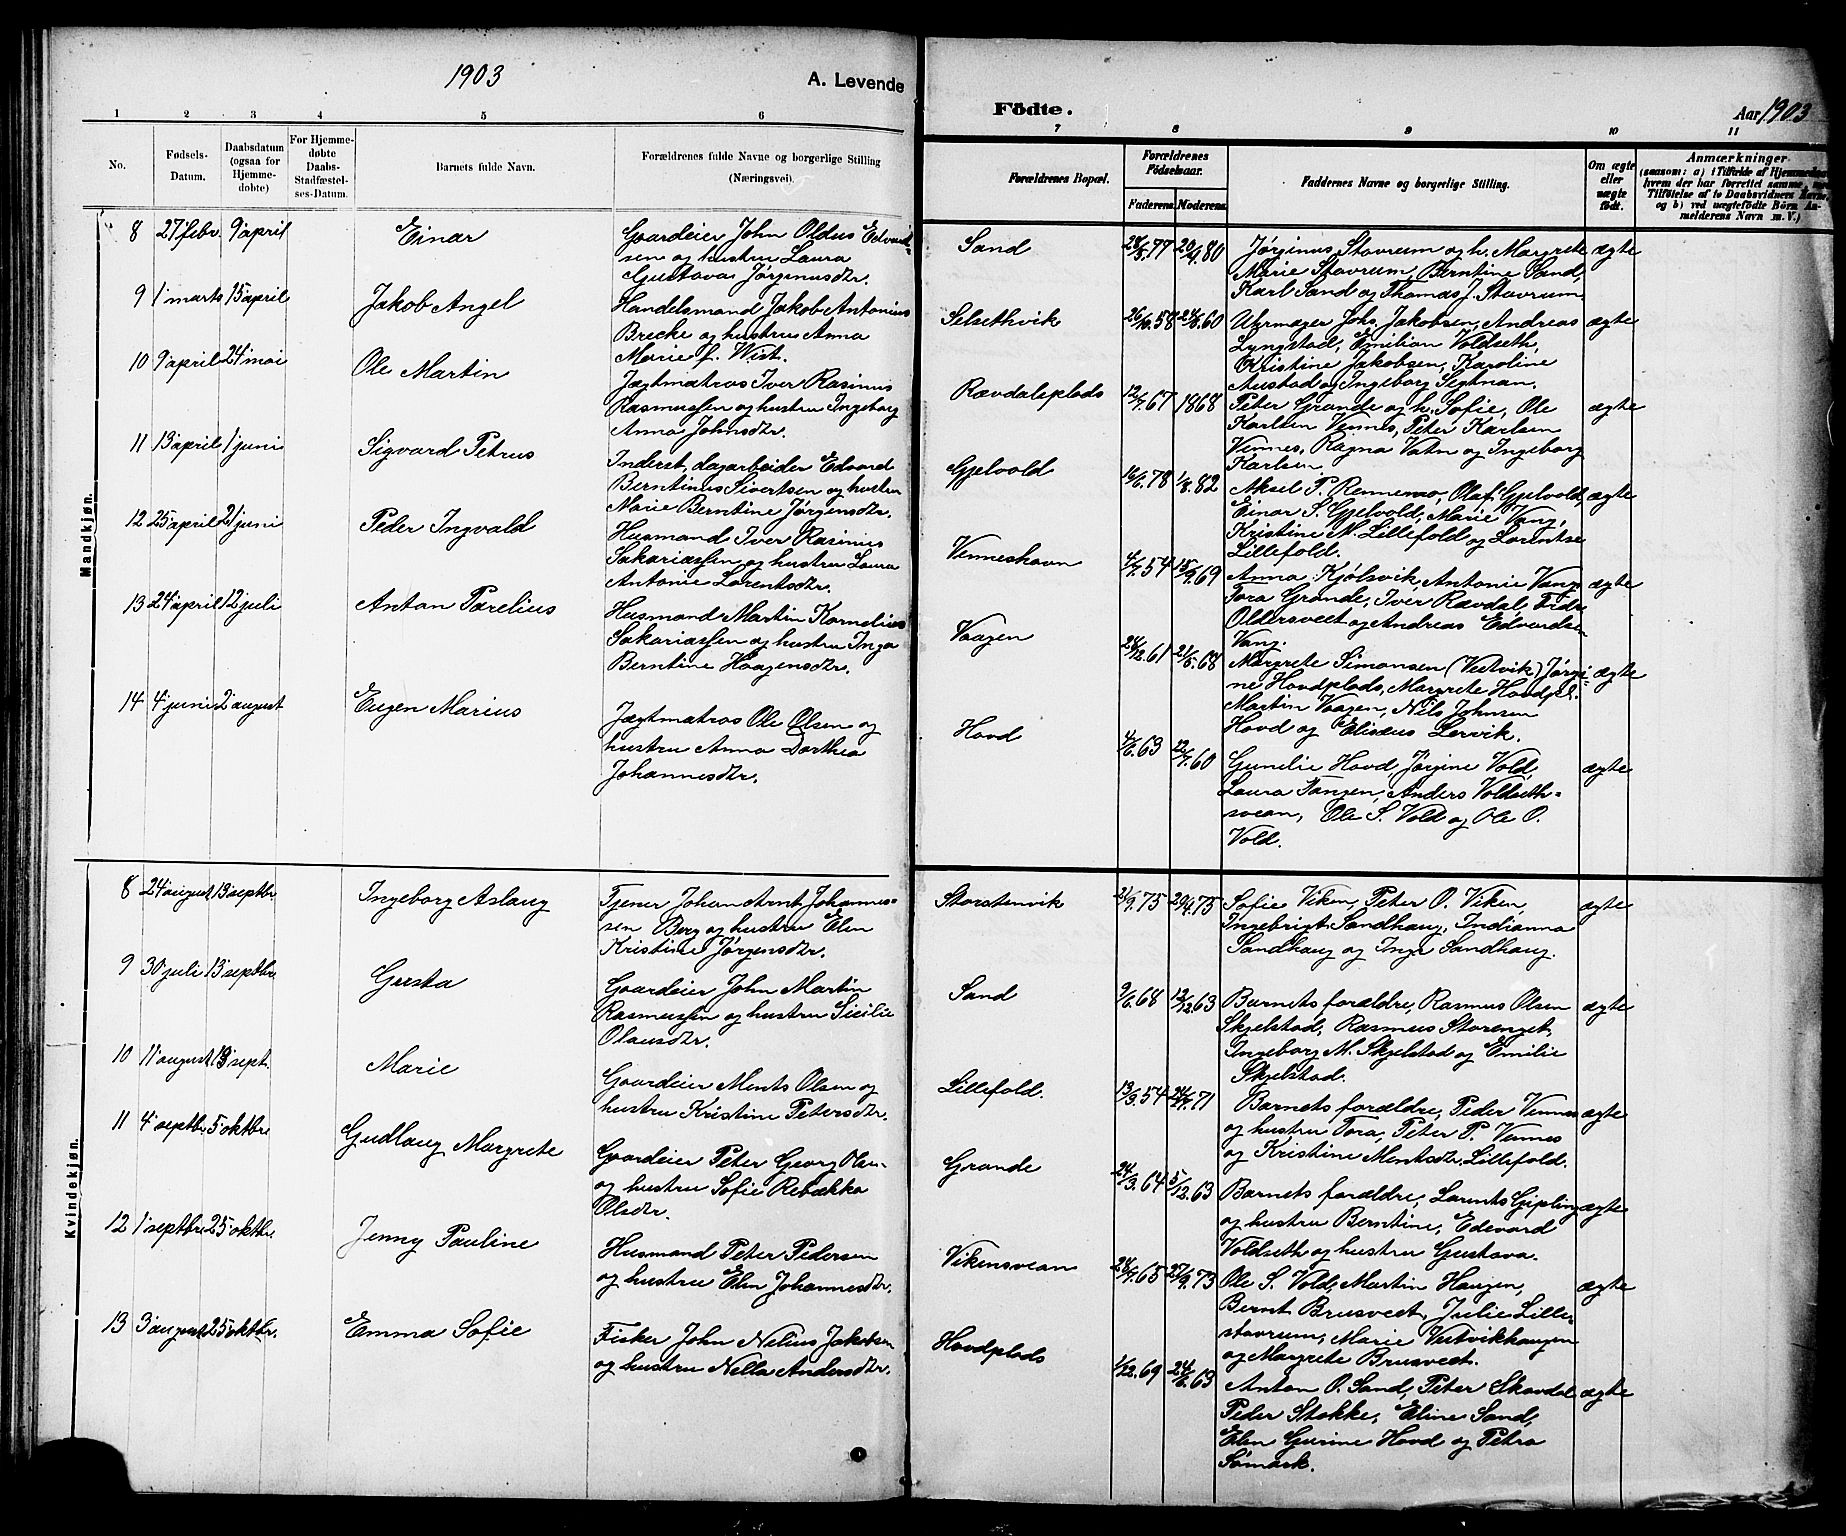 1903
A. Levende
1 2 3 4 5 6
No.
Fødsels-
Datum.
Daabsdatum
(ogsaa for
Hjemme-
døbte)
For Hjemme-
døbte
Daabs-
Stadfæstel-
ses-Datum.
Barnets fulde Navn.
Forældrenes fulde Navne og borgerlige Stilling
(Næringsvei).
Mandkjøn.
8 27 febr. 9 april Einar
Gaardeier John Oldus Edvard-
sen og hustru Laura
Gustava Jørginusdtr.
9 1 marts 15 april Jakob Angel
Handelsmand Jakob Antonius
Brecke og hustru Anna
Marie f. Wist.
10 9 april 24 mai Ole Martin
Jægtmatros Iver Rasinus
Rasmussen og hustru Ingeborg
Anna Johnsdtr.
11 13 april 1 juni Sigvard Petrus
Inderst, dagarbeider Edvard
Berntinus Sivertsen og hustru
Marie Berntine Jørgensdtr.
12 25 april 21 juni Peder Ingvald
Husmand Iver Rasinus
Sakariassen og hustru Laura
Antonie Lorentsdtr.
13 24 april 12 juli Anton Parelius
Husmand Martin Kornelius
Sakariassen og hustru Inga
Berntine Haagensdtr.
14 4 juni 2 august Eugen Marius
Jægtmatros Ole Olsen og
hustru Anna Dorthea
Johannesdtr.
Kvindekjøn.
8 24 august 13 septbr Ingeborg Aslaug
Tjener Johan Arnt Johannes-
sen Berg og hustru Elen
Kristine Jørgensdtr.
9 30 juli 13 septbr Gusta
Gaardeier John Martin
Rasmussen og hustru Sicilie
Olausdtr.
10 11 august 13 sept. Marie
Gaardeier Ments Olsen og
hustru Kristine Petersdtr.
11 4 septbr 5 oktbr Gudlaug Margrete
Gaardeier Peter Georg
og hustru Sofie Rebækka
Olsdtr.
12 1 septbr 25 oktbr. Jenny Pauline
Husmand Peter Pedersen
og hustru Elen Johannesdtr.
13 3 august 25 oktbr. Emma Sofie
Fisker John Nelius Jakobsen
og hustru Nella Andersdtr.
Fødte.
Aar 1903
7 8 9 10 11
Forældrenes Bopæl.
Forældrenes
Fødselsaar.
Faderens. Moderens.
Faddernes Navne og borgerlige Stilling.
Om ægte
eller
uægte
født.
Anmærkninger
(saasom: a) i Tilfælde af Hjemmedaab,
hvem der har forrettet samme, med
Tilføielse af to Daabsvidners Navne,
og b) ved uægtefødte Børn An-
melderens Navn m. V.)
Sand 28/8.77 20/4.80
Jørginus Stavrum og h. Margrete ægte
Marie Stavrum, Berntine Sand,
Karl Sand og Thomas J. Stavrum.
Selsethvik 26/10.58 23/8.60
Uhrmager Johs. Jakobsen, Andreas ægte
Lyngstad, Emilian Voldseth,
Kristine Jakobsen, Karoline
Austad og Ingeborg Sigtnan.
Rævdalsplads 12/7.67 1868
Peter Grande og h. Sofie, Ole ægte
Karlsen Vennes, Peter Karlsen
Vennes, Ragna Vatn og Ingeborg
Karlsen.
Gjelvold 16/6.78 1/8.82
Aksel P. Rennemo, Olaf Gjelvold, ægte
Einar S. Gjelvold, Marie Vang,
Kristine M. Lillefold og Lorentse
Lillefold.
Venneshavn 4/7.54 18/9.69
Anna Kjølsvik, Antonie Vang, ægte
Tora Grande, Iver Rævdal,
Oldersveet og Andreas Edvardsen
Vang.
Vaagen 28/12.61 21/5.68
Margrete Simonsen (Vestvik) Jørgi- ægte
ne Hovdplads, Margrete Hovdpl.
Martin Vaagen, Nils Johnsen
Hovd og Elisæus Lervik.
Hovd 4/6.63 12/7.60
Gunelie Hovd, Jørgine Vold, ægte
Laura Tangen, Anders Voldseth-
svean, Ole S. Vold og Ole O.
Vold.
Storstenvik 21/9.75 29/4.75
Sofie Viken, Peter O. Viken, ægte
Ingebrigt Sandhaug, Indianna
Sandhaug og Inga Sandhaug.
Sand 9/6.68 12/12.63
Barnets forældre, Rasmus Olsen ægte
Skjelstad, Rasmus Storenget,
Ingeborg M. Skjelstad og Emilie
Skjelstad.
Lillefold. 13/3.54 24/7.71
Barnets forældre, Peder Vennes ægte
og hustru Tora, Peter P. Vennes
og Kristine Mentsdtr. Lillefold.
Grande 24/3.64 5/12.63
Barnets forældre, Larents Gipling ægte
og hustru Berntine, Edevard
Voldseth og hustru Gustava.
Vikensvean 28/7.65 27/9.73
Ole S. Vold, Martin Haugen, ægte
Bernt Brusveet, Julie Lille-
stavrum, Marie Vestvikhaugen
og Margrete Brusveet.
Hovdplads 1/12.69 24/6.63
Anton O. Sand, Peter Skavdal ægte
Peder Stokke, Eline Sand,
Elen Gurine Hovd og Petra
Sømark.